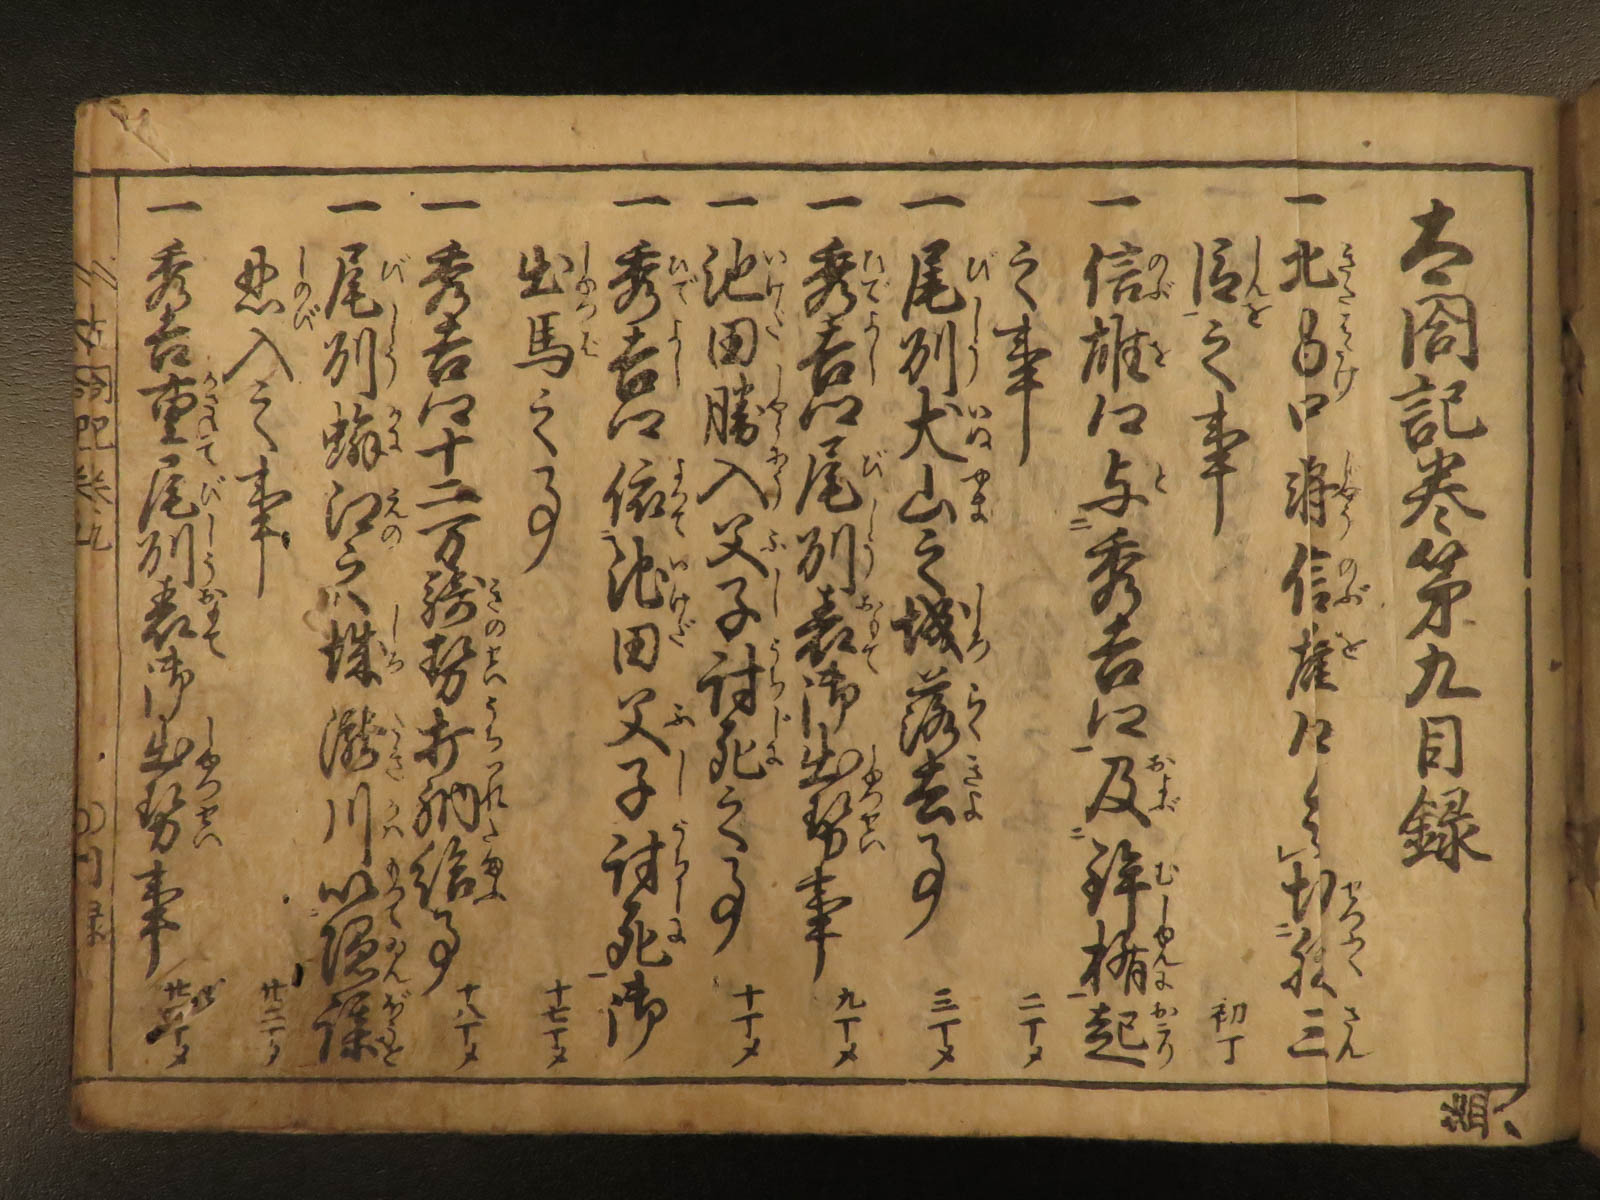 太閤記巻第九目録
一 北畠中将信雄卿令切腹三
臣之事 初丁
一 信雄卿与秀吉卿及鉾楯起
之事 二丁メ
一 尾州犬山之城落去事 三丁メ
一 秀吉卿尾州表御出勢事 九丁メ
一 池田勝入父子討死之事 十丁メ
一 秀吉卿依池田父子討死御
出馬之事 十七丁メ
一 秀吉卿十二万騎勢打納給事 十八丁メ
一 尾州蟹江之城瀧川以隠謀
忍入之事 廿二丁メ
一 秀吉重尾州表御出勢事